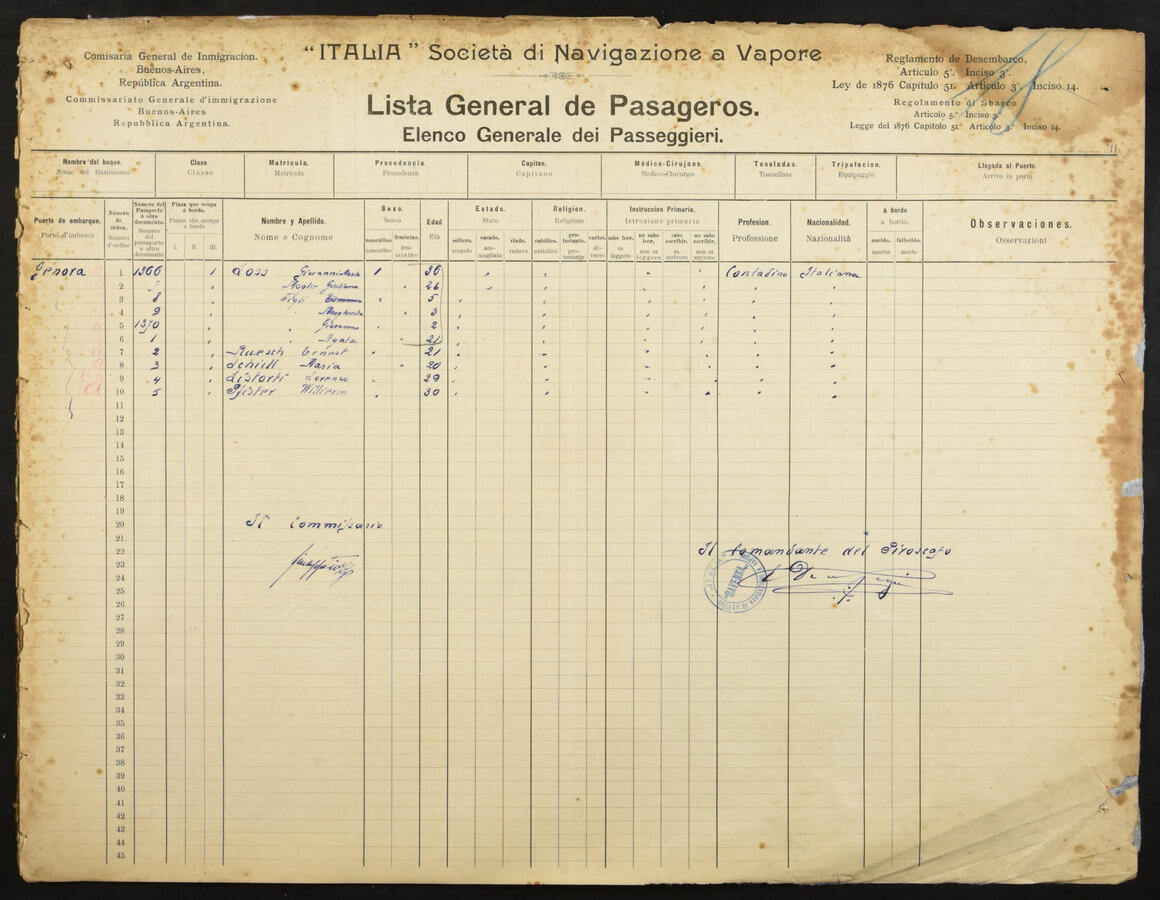 "ITALIA" Società di Navigazione a Vapore
Comisaría General de Inmigracion.
Buenos-Aires,
República Argentina.
Commissariato Generale d'immigrazione
Buenos-Aires
Repubblica Argentina.
Lista General de Pasageros.
Elenco Generale dei Passeggieri.
Reglamento de Desembarco,
Articulo 5°. Inciso 3°.
Ley de 1876 Capítulo 51. Artículo 3°. Inciso 14.
Regolamento di Sbarco
Articolo 5.° Inciso 3.
Legge del 1876 Capitolo 51. Articolo 3. Inciso 14.
Nombre del buque. Clase. Matrícula. Procedencia. Capitan. Médico-Cirujano. Toneladas. Tripulacion. Llegada al Puerto.
Nome del Bastimento Classe Matricola Procedenza Capitano Medico-Chirurgo Tonnellate Equipaggio Arrivo in porto
Puerto de embarque.
Porto d'imbarco
Número de órden.
Numero d'ordine
Número del Pasaporte ú otro documento.
Numero del passaporto o altro documento
Plaza que ocupa á bordo.
Piazza che occupa a bordo
I. II. III.
Nombre y Apellido.
Nome e Cognome
Sexo.
Sesso
masculino feminino.
masculino femminino
Edad
Età
Estado.
Stato
soltero. casado. viudo.
scapolo ammogliato vedovo
Religion.
Religione
católico. protestante. varios.
cattolico protestante diversi
Instruccion Primaria.
Istruzione primaria
sabe leer. no sabe leer. sabe escribir. no sabe escribir.
sa leggere non sa leggere sa scrivere non sa scrivere
Profesion.
Professione
Nacionalidad.
Nazionalità
á bordo
a bordo.
nacido. fallecido.
nascite morte
Observaciones.
Osservazioni
Genova 1 1366 1 Loss Giovanni 1 36 Contadino Italiana
2 Giuliana 26
3 8 Figli 5
4 9 Margherita 3
5 1370 Giovanni 2
6 1 Agata 21
7 2 Ruesch Ernest 21
8 3 Schiell Maria 20
9 4 Listorti Lorenzo 29
10 5 Pfister William 30
11
12
13
14
15
16
17
18
19
20 Il Commissario
21
22 Il Comandante del Piroscafo
23
24
25
26
27
28
29
30
31
32
33
34
35
36
37
38
39
40
41
42
43
44
45
"RAVENNA"